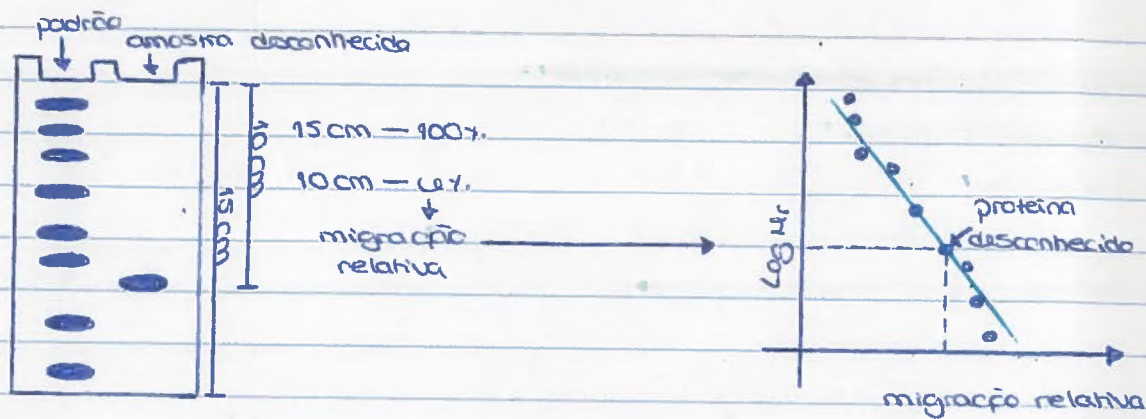 padrão
amostra desconhecida
15 cm — 100%.
10 cm
10 cm —
15 cm
migração
relativa
proteína
desconhecida
Log Mr
migração relativa